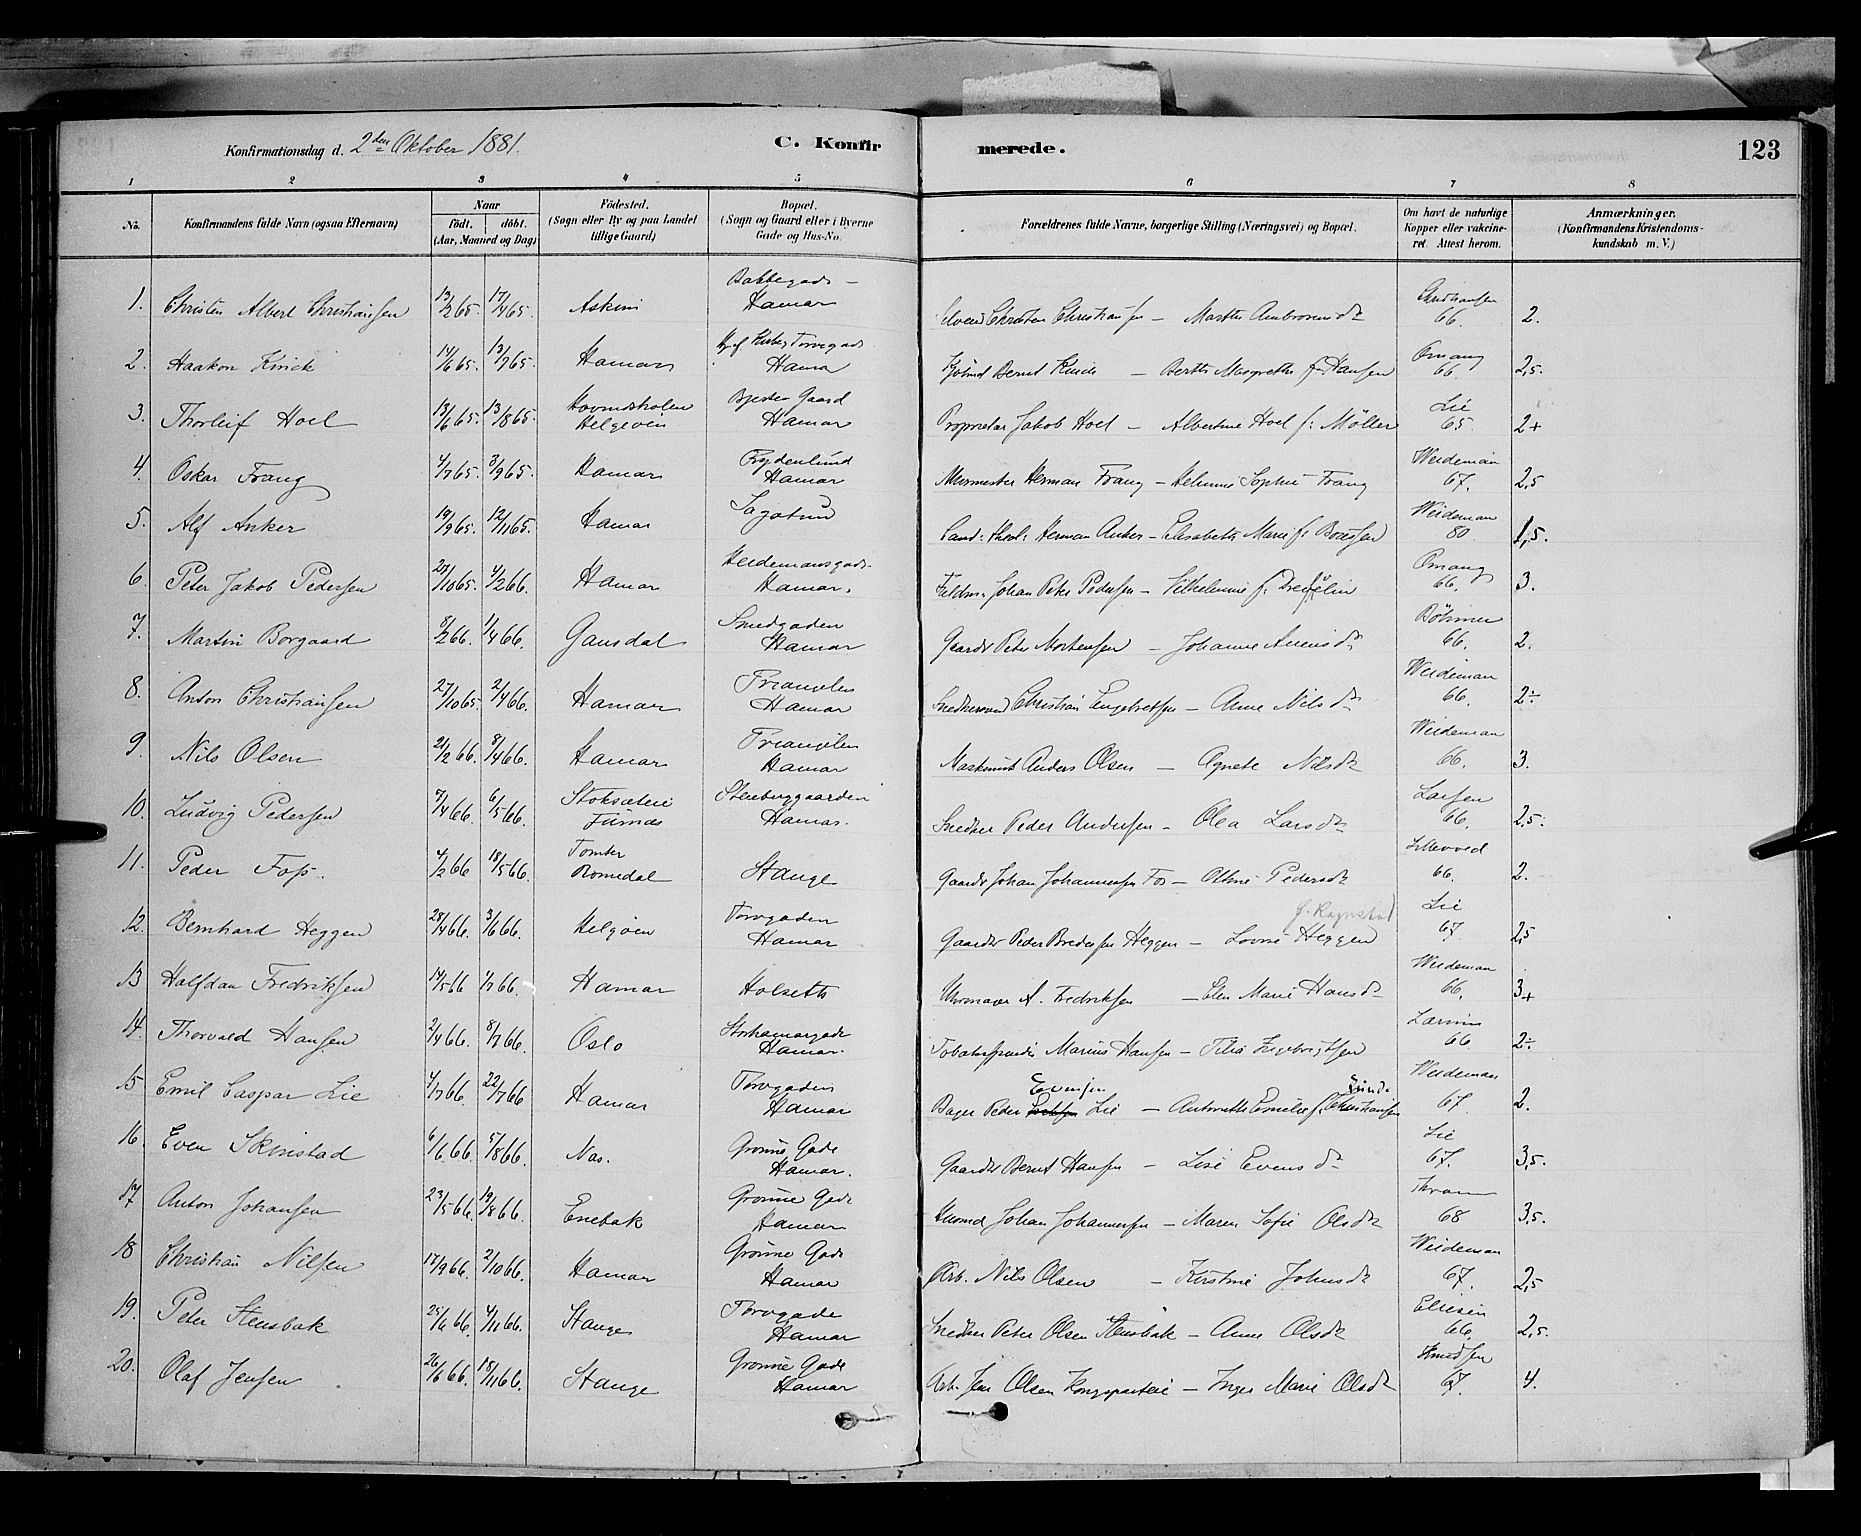 Konfirmationsdag d. 2den Oktober 1881.
C. Konfirmerede.
123
1 2 3 4 5 6 7 8
No.
Konfirmandens fulde Navn (ogsaa Efternavn)
Naar
födt. döbt.
(Aar, Maaned og Dag)
Födested.
(Sogn eller By og paa Landet
tillige Gaard)
Bopæl.
(Sogn og Gaard eller i Byerne
Gade og Hus-No.
Forældrenes fulde Navne, borgerlige Stilling (Næringsvei) og Bopæl.
Om havt de naturlige
Kopper eller vakcine-
ret. Attest herom.
Anmærkninger.
(Konfirmandens Kristendoms-
kundskab m. V.)
1. Christen Albert Christiansen 13/2 65. 17/4 65. Askim Bakkegade - Hamar Christen Christiansen - Marthe Ambrosensdr Christiansen 66. 2.
2. Haakon Kinck 14/6 65. 13/7 65. Hamar Torvegad. Hamar Bernt Kinck - Berthe Margrethe f. Hansen Omang 66. 2,5.
3. Thorleif Hoel 13/6 65. 13/8 65. Helgøen Gaard Hamar Proprietær Jakob Hoel - Albertine Hoel f: Möller Lie 65. 2+
4. Oskar Frang 4/7 65. 3/9 65. Hamar Frydenlund Hamar Murmester Herman Frang - Sophie Frang Weideman 67. 2,5
5. Alf Anker 19/9 65. 12/11 65. Hamar Sagatun Cand: theol: Herman Anker - Elisabeth Marie f. Weideman 80. 1,5.
6. Peter Jakob Pedersen /10 65. 4/2 66. Hamar Heidemansgad. Hamar. Johan Peter Pedersen - Vilhelmine f. Omang 66. 3.
7. Martin Borgaard 8/2 66. 1/4 66. Gausdal Smedgaden Hamar Gaardr Peter Mortensen - Johanne Böhmer 66. 2.
8. Anton Christiansen 27/10 65. 2/4 66. Hamar Triangelen Hamar Snedkersvend Christian Engebretsen - Anne Nilsdr Weideman 66. 2÷
9. Nils Olsen 21/2 66. 8/4 66. Hamar Triangelen Hamar Maskinist Anders Olsen - Agnete Nilsdr Weideman 66. 3.
10. Ludvig Pedersen 7/4 66. 6/5 66. Furnæs Stenberggaarden Hamar. Snedker Peder Andersen - Olea Larsdr Larsen 66. 2,5.
11. Peder Foss. 4/2 66 18/5 66. Tomter Romedal Stange Gaardr Johan Johannessen Fos - Oline Pedersdr 66. 2.
12. Bernhard Heggen 28/4 66. 3/6 66. Helgøen Torvgaden Hamar Gaardr Peder Bredesen Heggen - Lovise Heggen Lie 67. 2,5
13 Halfdan Fredriksen 14/5 66 1/7 66. Hamar Holseth Uhrmager A. Fredriksen - Elen Marie Hansdr Weideman 66. 3+
14. Thorvald Hansen 2/4 66. 8/7 66. Oslo Storhamargade Hamar. Marius Hansen - 66 2÷
15 Emil Caspar Lie 4/7 66. 22/7 66 Hamar Torvgaden Hamar Bager Peder Evensen Lie - Antonette Emilie f. Christiansen Weideman 67. 2.
16. Even Skinstad 6/6 66. 5/8 66. Næs. Grønne Gade Hamar. Gaardr Bernt Hansen - Lise Evensdr Lie 67. 3,5.
17 Anton Johansen 23/5 66. 19/8 66. Enebak Grønne Gade Hamar Husmd Johan Johannessen - Maren Sofie Olsdr 68 3,5.
18 Christian Nilsen 17/9 66. 2/10 66. Hamar Grønne Gade Hamar Arb. Nils Olsen - Kirstine Johnsdr Weideman 67. 2,5
19. Peter Stensbak 25/6 66. 4/11 66. Stange Torvgade Hamar Snedker Peter Olsen Stensbak - Anne Olsdr Ellesen 66. 2,5.
20. Olaf Jensen 26/6 66. 18/11 66. Stange Grønne Gade Hamar Arb. Jens Olsen - Inger Marie Olsdr Knudsen 67. 4.